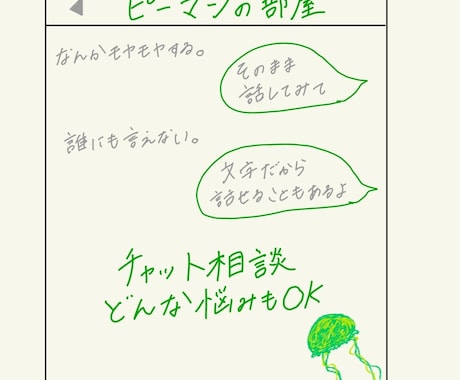 ピーマンの部屋
なんかモヤモヤする。
そのまま
話してみて
誰にも言えない。
文字だから
話せることもあるよ
チャット相談
どんな悩みもOK